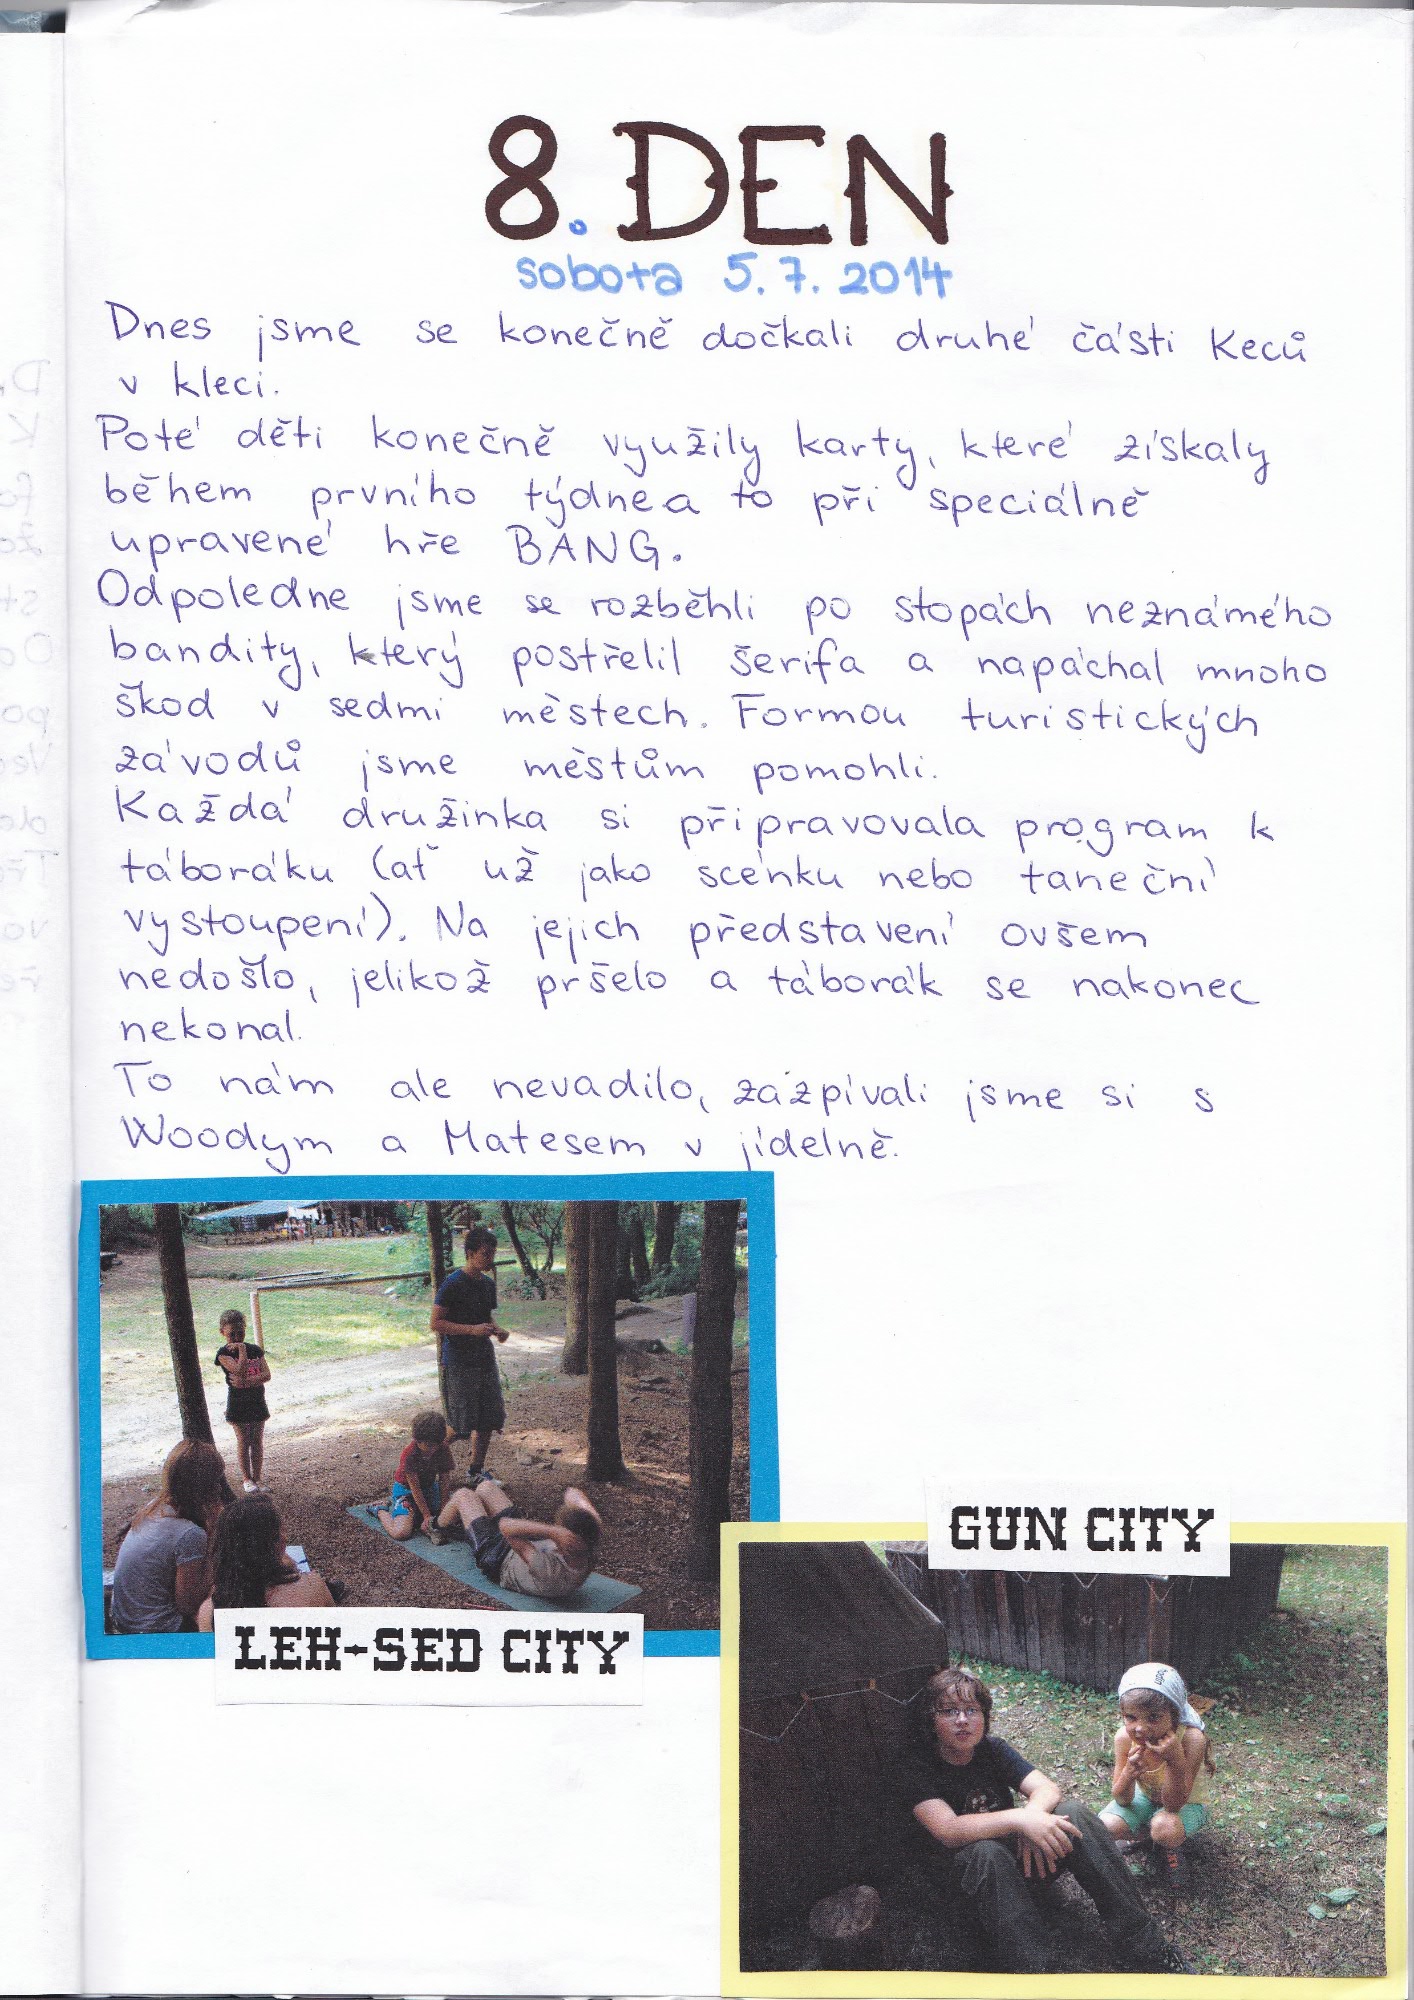 8. DEN
sobota 5. 7. 2014
Dnes jsme se konečně dočkali druhé části Keců
v kleci.
Poté děti konečně využily karty, které získaly
během prvního týdne a to při speciálně
upravené hře BANG.
Odpoledne jsme se rozběhli po stopách neznámého
bandity, který postřelil šerifa a napáchal mnoho
škod v sedmi městech. Formou turistických
závodů jsme městům pomohli.
Každá družinka si připravovala program k
táboráku (ať už jako scénku nebo taneční
vystoupení). Na jejich představení ovšem
nedošlo, jelikož pršelo a táborák se nakonec
nekonal.
To nám ale nevadilo, zazpívali jsme si s
Woodym a Matesem v jídelně.
GUN CITY
LEH-SED CITY